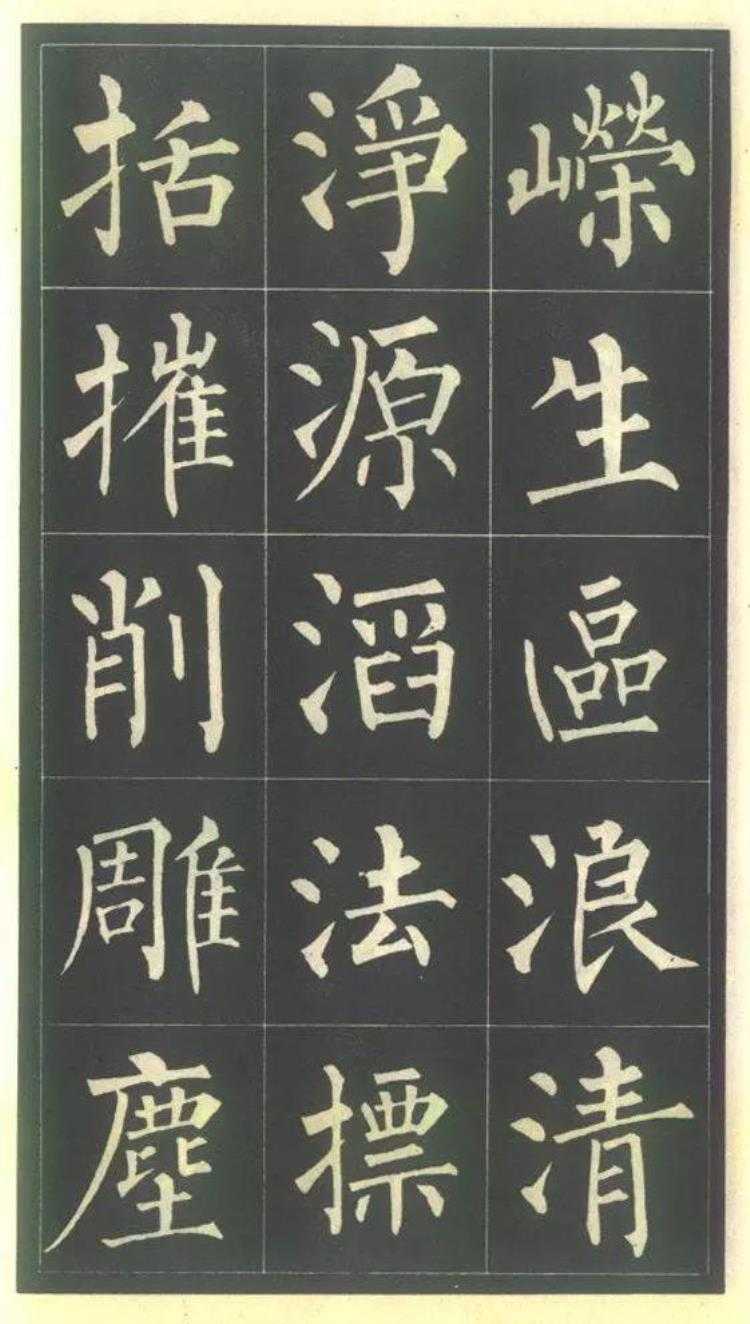 嶸生區浪清
淨源滔法標
括摧削雕塵